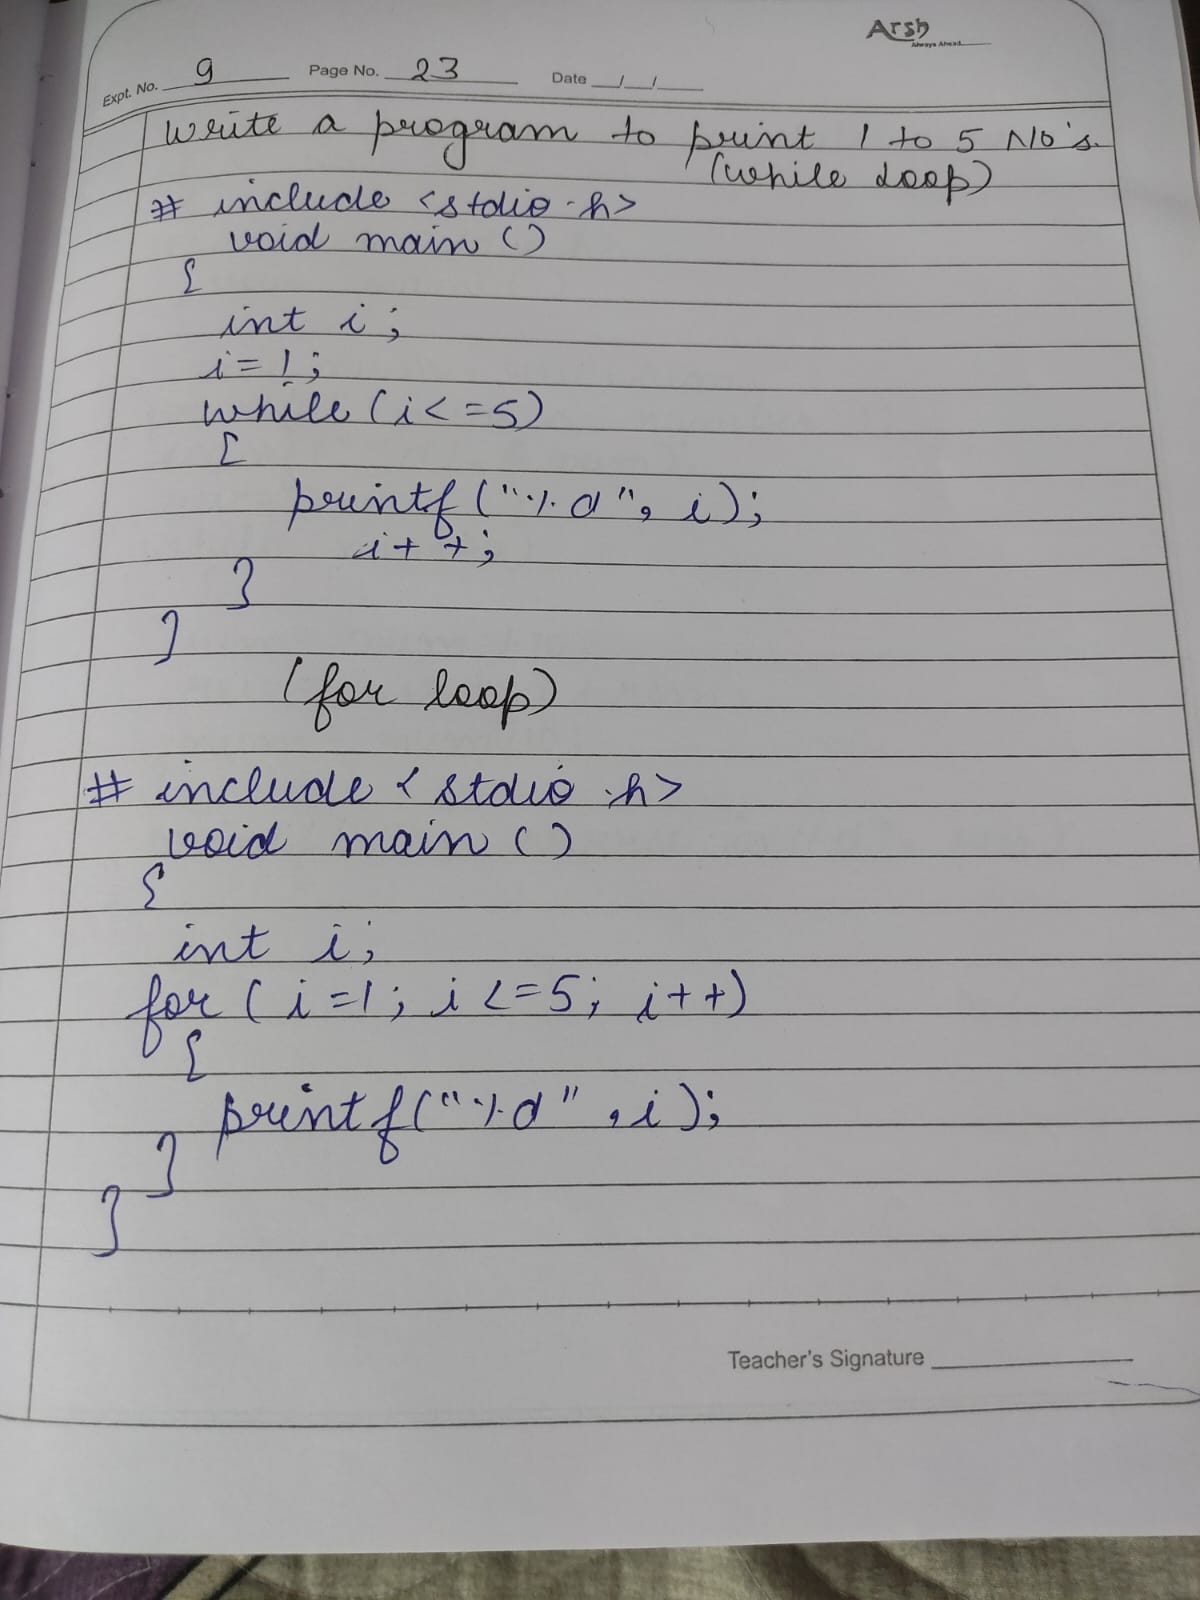 Arsh
Always Ahead
Expt. No. 9 Page No. 23 Date / /
Write a program to print 1 to 5 No's.
(while loop)
# include <stdio.h>
void main ()
{
int i;
i=1;
while (i<=5)
{
printf ("%d", i);
i++;
}
}
(for loop)
# include <stdio.h>
void main ()
{
int i;
for (i=1; i<=5; i++)
{
printf("%d",i);
}
}
Teacher's Signature